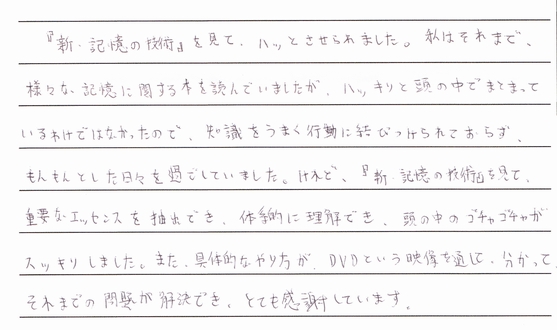 『新・記憶の技術』を見て、ハッとさせられました。私はそれまで、
様々な記憶に関する本を読んでいましたが、ハッキリと頭の中でまとまって
いるわけではなかったので、知識をうまく行動に結びつけられておらず、
もんもんとした日々を過ごしていました。けれど、『新・記憶の技術』を見て、
重要なエッセンスを抽出でき、体系的に理解でき、頭の中のゴチャゴチャが
スッキリしました。また、具体的なやり方が、DVDという映像を通じ、分かって
それまでの問題が解決でき、とても感謝しています。